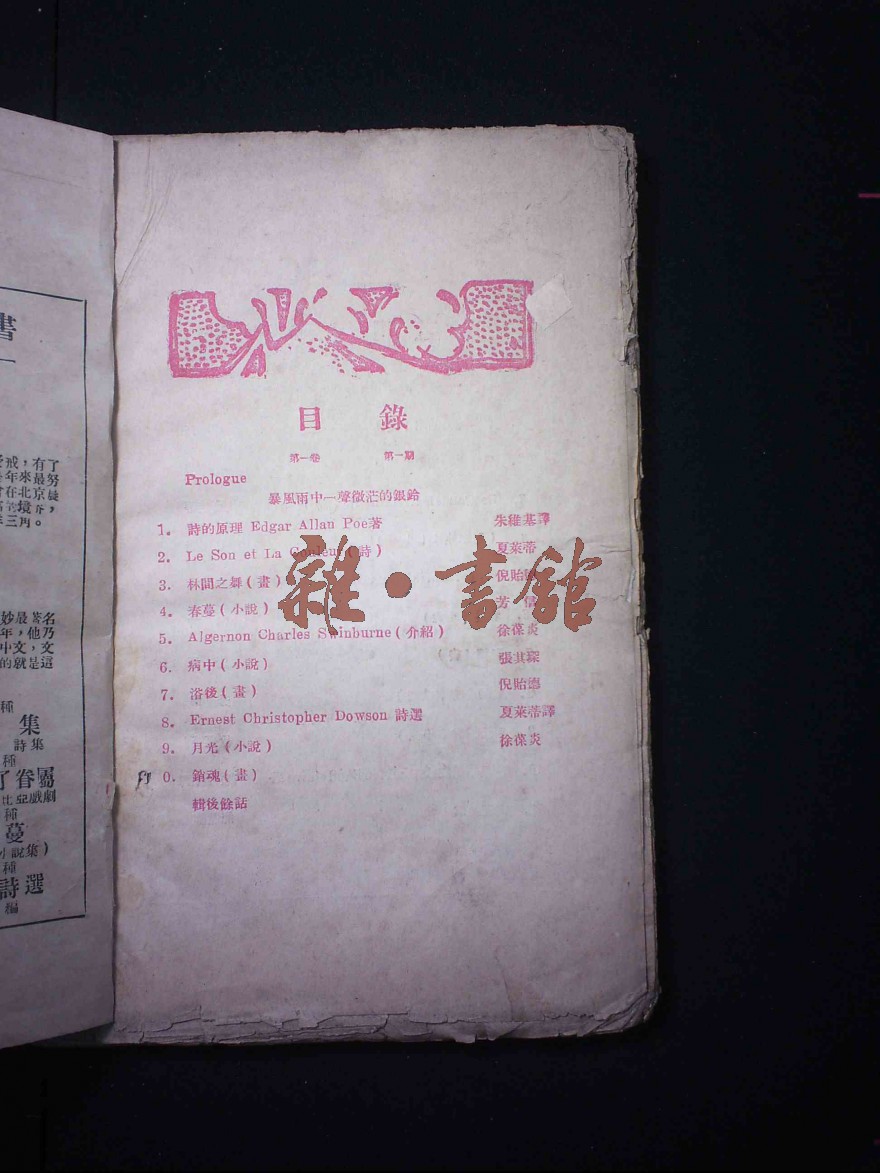 書
戒，有了
年來最努
在北京
境
三角。
名
年，他乃
中文，文
的就是這
種
集
詩集
種
了眷屬
比亞戲劇
種
蔓
小說集）
種
詩選
編
目 錄
第一卷 第一期
Prologue
暴風雨中一聲微茫的銀鈴
1. 詩的原理 Edgar Allan Poe著 朱維基譯
2. Le Son et La Couleur（詩） 夏萊蒂
3. 林間之舞（畫） 倪貽德
4. 春蔓（小說） 芳信
5. Algernon Charles Swinburne（介紹） 徐葆炎
6. 病中（小說） 張其琛
7. 浴後（畫） 倪貽德
8. Ernest Christopher Dowson 詩選 夏萊蒂譯
9. 月光（小說） 徐葆炎
0. 銷魂（畫）
輯後餘話
雜·書館